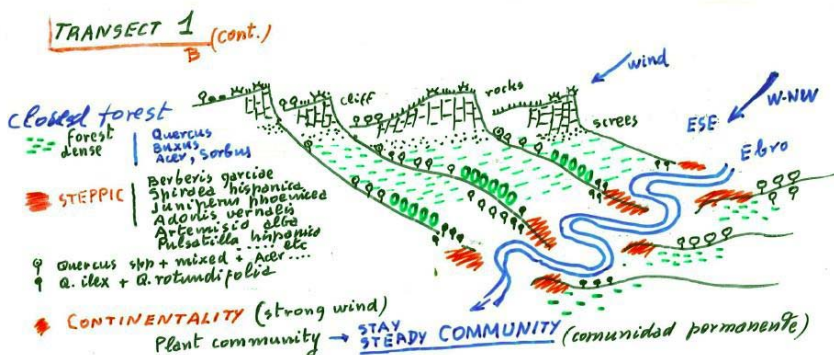 TRANSECT 1
B (cont.)
wind
W-NW
cliff
rocks
screes
ESE
Ebro
closed forest
forest
dense
Quercus
Buxus
Acer, Sorbus
STEPPIC
Berberis garciae
Spiraea hispanica
Juniperus phoenicea
Adonis vernalis
Artemisia alba
Pulsatilla hispanica
..... etc
Quercus spp + mixed + Acer ....
Q. ilex + Q. rotundifolia
CONTINENTALITY (strong wind)
Plant community → STAY
STEADY COMMUNITY (comunidad permanente)